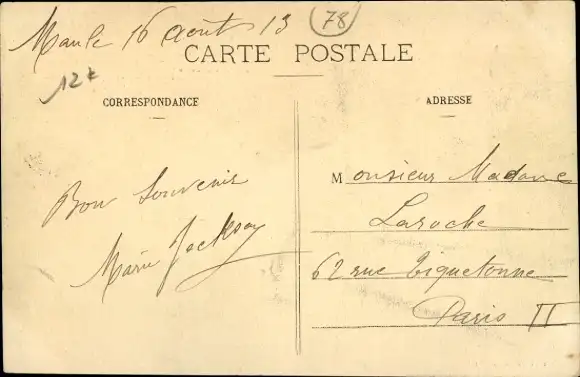 Maule 16 Août 13
78
CARTE POSTALE
12€
CORRESPONDANCE
Bon Souvenir
Marie Jackson
ADRESSE
Monsieur Madame
Laroche
62 rue Tiquetonne
Paris II